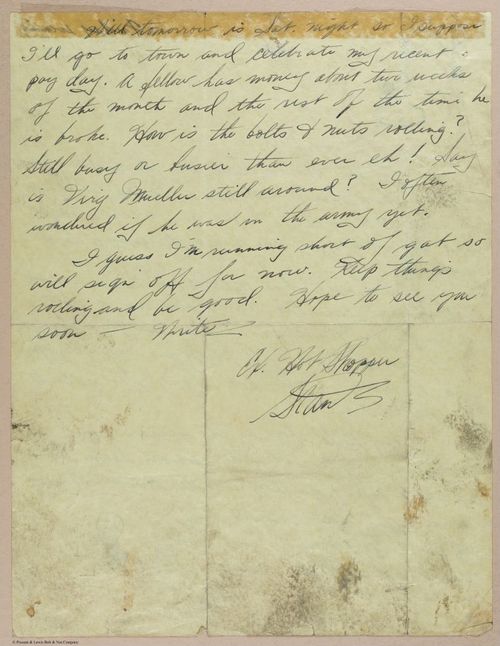 Well tomorrow is Sat. night so I suppose
I'll go to town and celebrate my recent
pay day. A fellow has money about two weeks
of the month and the rest of the time he
is broke. How is the bolts & nuts rolling?
Still busy or busier than ever eh! Say
is Virg Mueller still around? I often
wondered if he was in the army yet.
I guess I'm running short of gab so
will sign off for now. Keep things
rolling and be good. Hope to see you
soon — Write
Ex. Hot Shopper
Stan
© Pawnee & Lewis Bolt & Nut Company